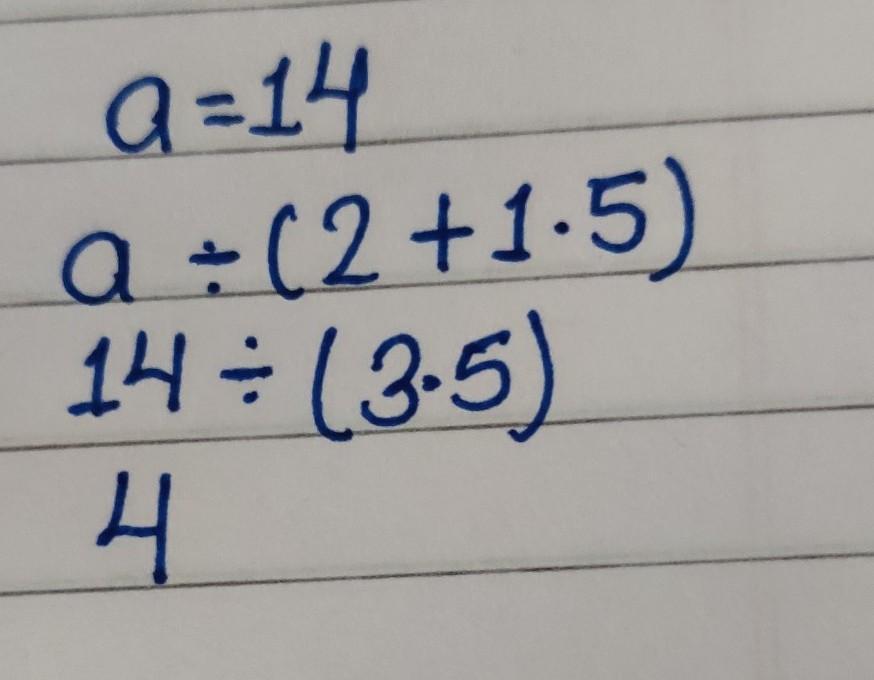 a=14
a ÷ (2 + 1·5)
14 ÷ (3·5)
4